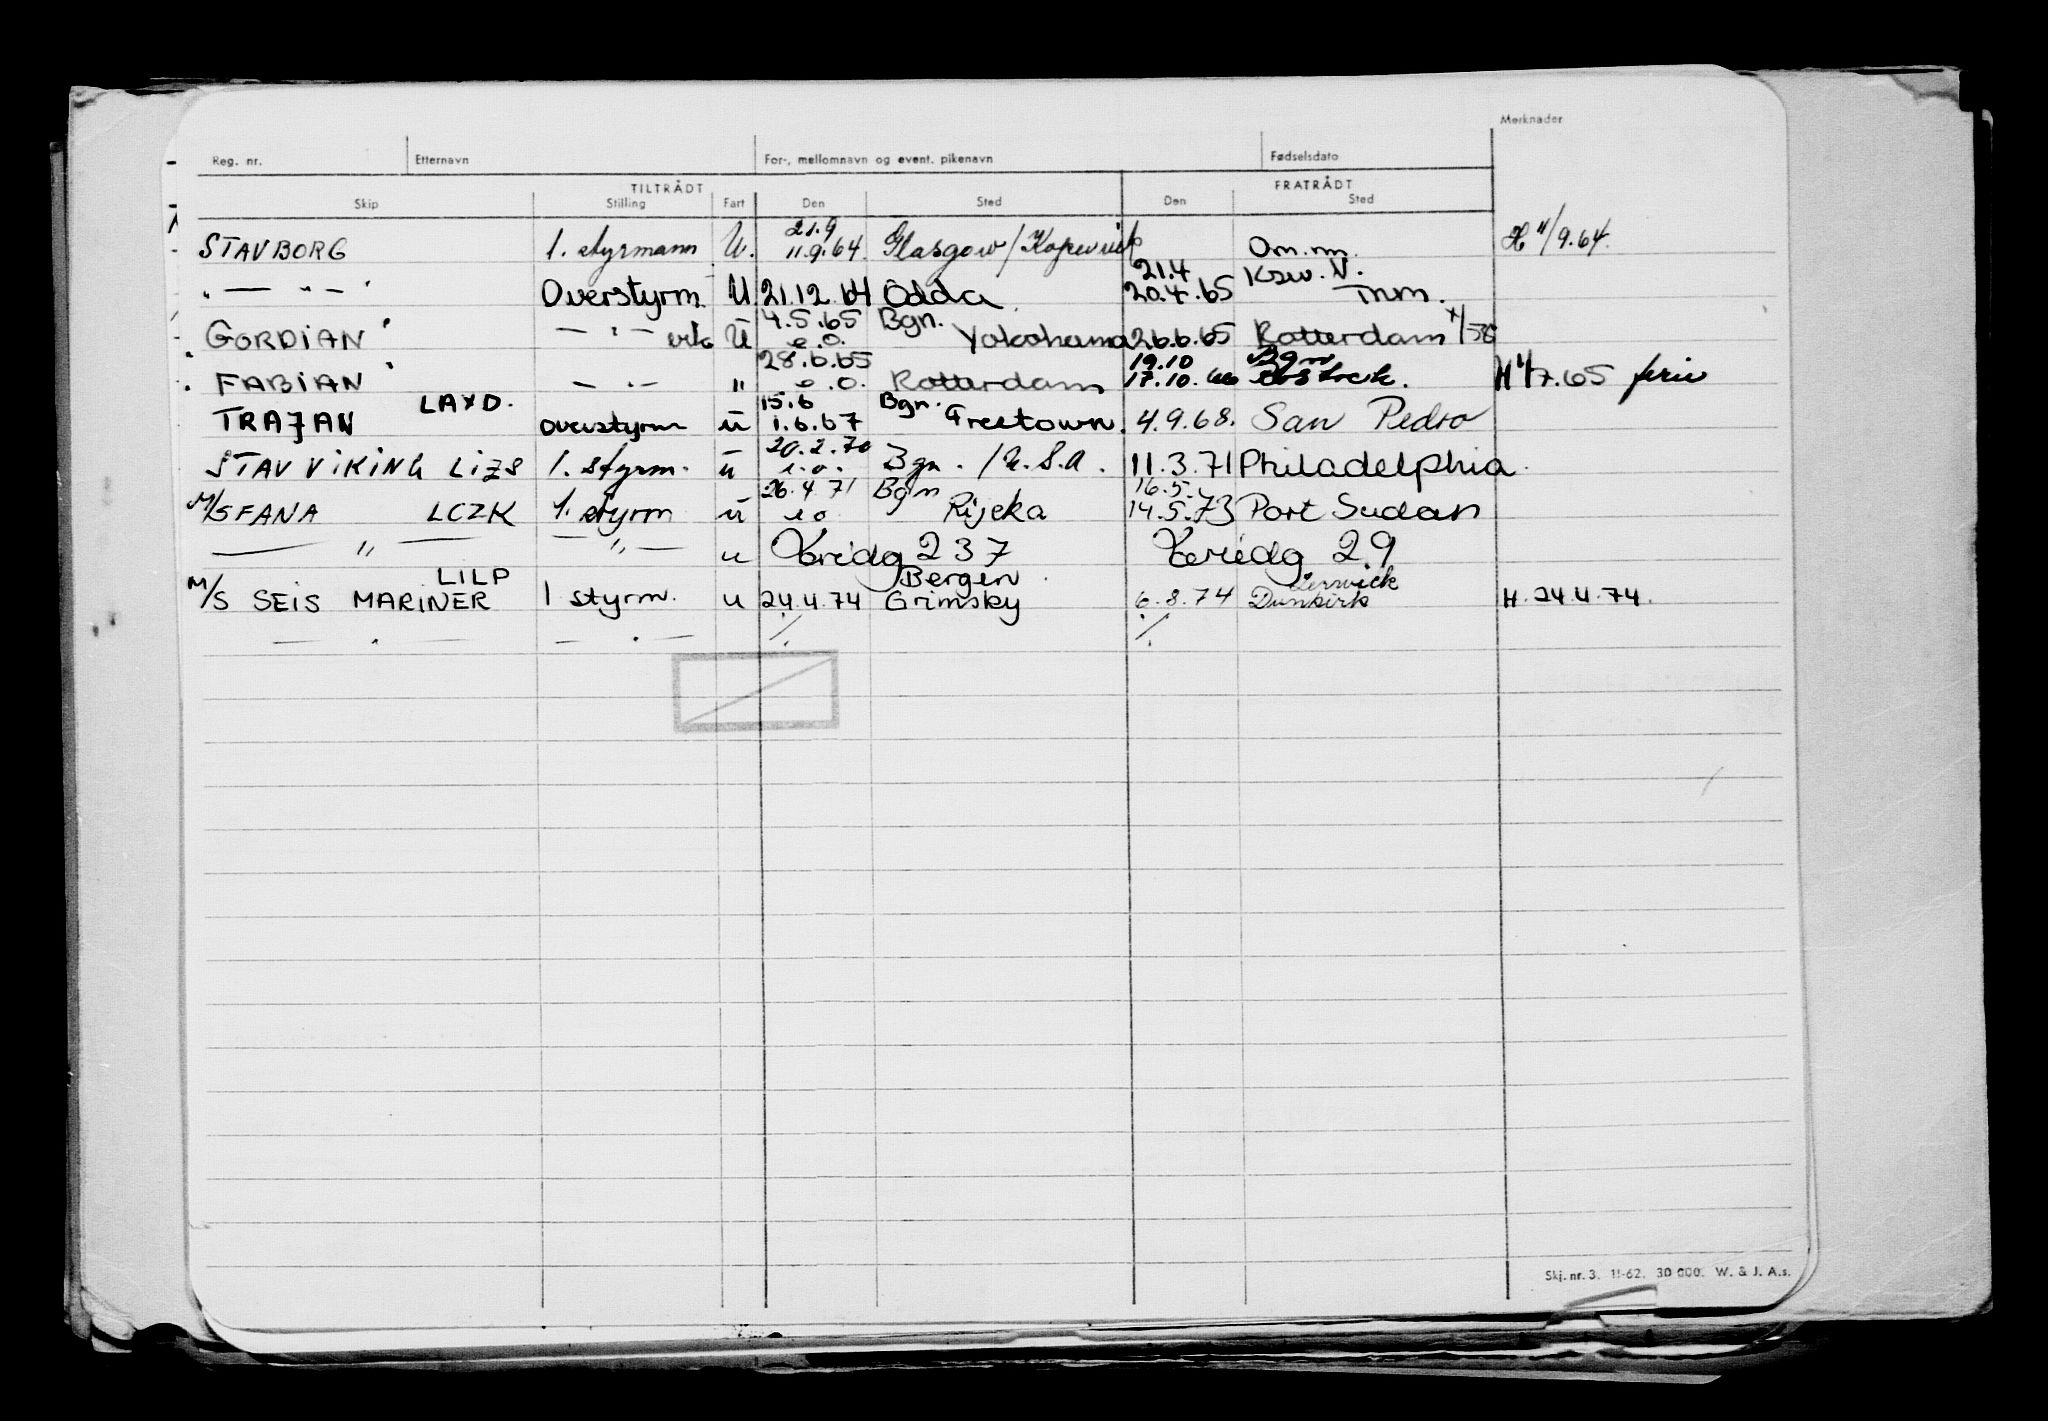 Merknader
Reg. nr. Etternavn For-, mellomnavn og event. pikenavn Fødselsdato
TILTRÅDT FRATRÅDT
Skip Stilling Fart Den Sted Den Sted
21.9
STAVBORG 1. styrmann U. 11.9.64. Glasgow/Kopervik Om.m. H 11/9.64.
21.4
" — " — " Overstyrm. U 21.12.64 Odda 20.4.65
4.5.65 Bgn.
GORDIAN — " — U e.o. Yokohama 26.6.65 Rotterdam
28.6.65 19.10 Bgn
FABIAN — " — " e.o. Rotterdam 17.10.66 H 1/7.65 ferie
LAXD. 15.6 Bgn.
TRAJAN overstyrm u 1.6.67 Freetown. 4.9.68. San Pedro
20.2.70
STAV VIKING LIZS 1. styrm. u e.o. Bgn. / U.S.A. 11.3.71 Philadelphia.
26.4.71 Bgn 16.5.
M/S FANA LCZK 1. styrm u e o Rijeka 14.5.73 Port Sudan
— " — — " — u 237 29
LILP Bergen Lerwick
M/S SEIS MARINER 1 styrm. u 24.4.74 Grimsby 6.8.74 Dunkirk H. 24.4.74.
— " — — " — ./. ./.
Skj. nr. 3. 11-62. 30 000. W. & J. A.s.